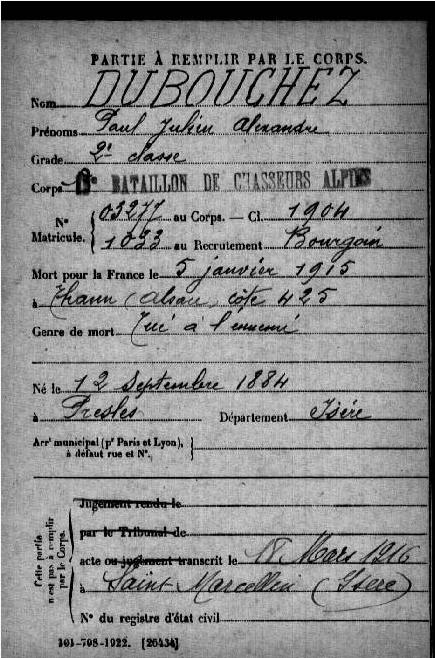 PARTIE À REMPLIR PAR LE CORPS.
Nom DUBOUCHEZ
Prénoms Paul Julien Alexandre
Grade 2e classe
Corps 13e BATAILLON DE CHASSEURS ALPINS
No 03277 au Corps. — Cl. 1904
Matricule. 1033 au Recrutement Bourgoin
Mort pour la France le 5 janvier 1915
à Thann (Alsace) côte 425
Genre de mort Tué à l'ennemi
Né le 12 Septembre 1884
à Presles Département Isère
Arrt municipal (pr Paris et Lyon),
à défaut rue et No.
Cette partie
n'est pas à remplir
par le Corps.
Jugement rendu le
par le Tribunal de
acte ou jugement transcrit le 18 Mars 1916
à Saint Marcellin (Isère)
No du registre d'état civil
101-708-1922. [26434]